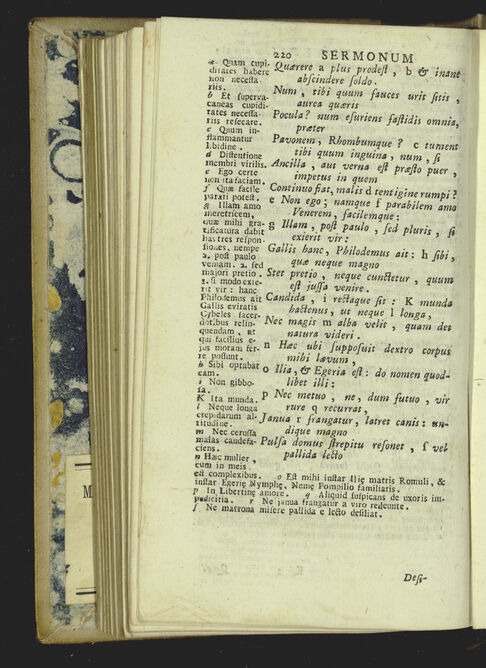 220 SERMONUM
Quærere a plus prodest, b & inane
abscindere soldo.
Num, tibi quum fauces urit sitis,
aurea quæris
Pocula? num esuriens fastidis omnia,
præter
Pavonem, Rhombumque? c tument
tibi quum inguina, num, si
Ancilla, aut verna est præsto puer,
impetus in quem
Continuo fiat, malis d tentigine rumpi?
e Non ego; namque f parabilem amo
Venerem, facilemque:
g Illam, post paulo, sed pluris, si
exierit vir:
Gallis hanc, Philodemus ait: h sibi,
quæ neque magno
Stet pretio, neque cunctetur, quum
est jussa venire.
Candida, i rectaque sit: K munda
hactenus, ut neque l longa,
Nec magis m alba velit, quam det
natura videri.
n Hæc ubi supposuit dextro corpus
mihi lævum,
o Ilia, & Egeria est: do nomen quod-
libet illi:
p Nec metuo, ne, dum futuo, vir
rure q recurrat,
Janua r frangatur, latret canis: un-
dique magno
Pulsa domus strepitu resonet, ſ vel
pallida lecto
a Quam cupi-
ditates habere
non necessa-
riis.
b Et superva-
caneas cupidi-
tates necessa-
riis resecare.
c Quum in-
flammantur
libidine.
d Distentione
membri virilis.
e Ego certe
non ita faciam.
f Quæ facile
parari potest.
g Illam amo
meretricem,
quæ mihi gra-
tificatura dabit
has tres respon-
siones, nempe
1. post paulo
veniam. 2. sed
majori pretio.
3. si modo exie-
rit vir: hanc
Philodemus ait
Gallis eviratis
Cybeles sacer-
dotibus relin-
quendam, at
qui facilius e-
jus moram fer-
re possunt.
h Sibi optabat
eam.
i Non gibbo-
sa.
K Ita munda.
l Neque longa
crepidarum al-
titudine.
m Nec cerussa
malas candefa-
ciens.
n Hæc mulier,
cum in meis
est complexibus. o Est mihi instar Iliæ matris Romuli, &
instar Egeriæ Nymphæ, Numæ Pompilio familiaris.
p In Libertinæ amore. q Aliquid suspicans de uxoris im-
pudicitia. r Ne janua frangatur a viro redeunte.
ſ Ne matrona misere pallida e lecto desiliat.
Desi-
M